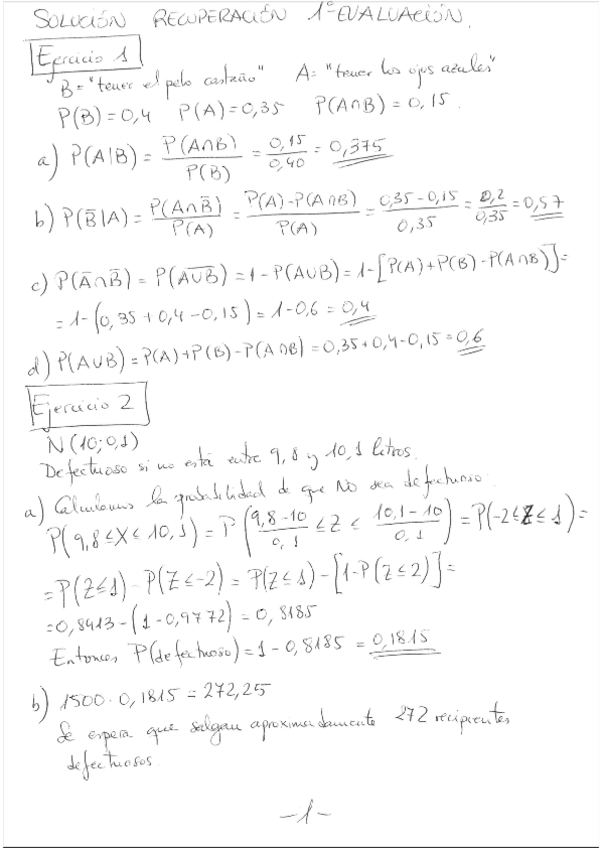 SOLUCIÓN RECUPERACIÓN 1ª EVALUACIÓN.
Ejercicio 1
B = "tener el pelo castaño" A = "tener los ojos azules"
P(B) = 0,4 P(A) = 0,35 P(A∩B) = 0,15.
a) P(A|B) = P(A∩B)/P(B) = 0,15/0,40 = 0,375
b) P(B̄|A) = P(A∩B̄)/P(A) = P(A)-P(A∩B)/P(A) = 0,35-0,15/0,35 = 0,2/0,35 = 0,57
c) P(Ā∩B̄) = P(A̅U̅B̅) = 1 - P(AUB) = 1-[P(A)+P(B)-P(A∩B)] =
= 1-(0,35+0,4-0,15) = 1-0,6 = 0,4
d) P(AUB) = P(A)+P(B)-P(A∩B) = 0,35+0,4-0,15 = 0,6
Ejercicio 2
N(10;0,1)
Defectuoso si no está entre 9,8 y 10,1 litros.
a) Calculamos la probabilidad de que NO sea defectuoso.
P(9,8≤X≤10,1) = P(9,8-10/0,1 ≤ Z ≤ 10,1-10/0,1) = P(-2≤Z≤1) =
= P(Z≤1) - P(Z≤-2) = P(Z≤1) - [1-P(Z≤2)] =
= 0,8413 - (1-0,9772) = 0,8185
Entonces P(defectuoso) = 1 - 0,8185 = 0,1815
b) 1500 · 0,1815 = 272,25
Se espera que salgan aproximadamente 272 recipientes
defectuosos.
-1-